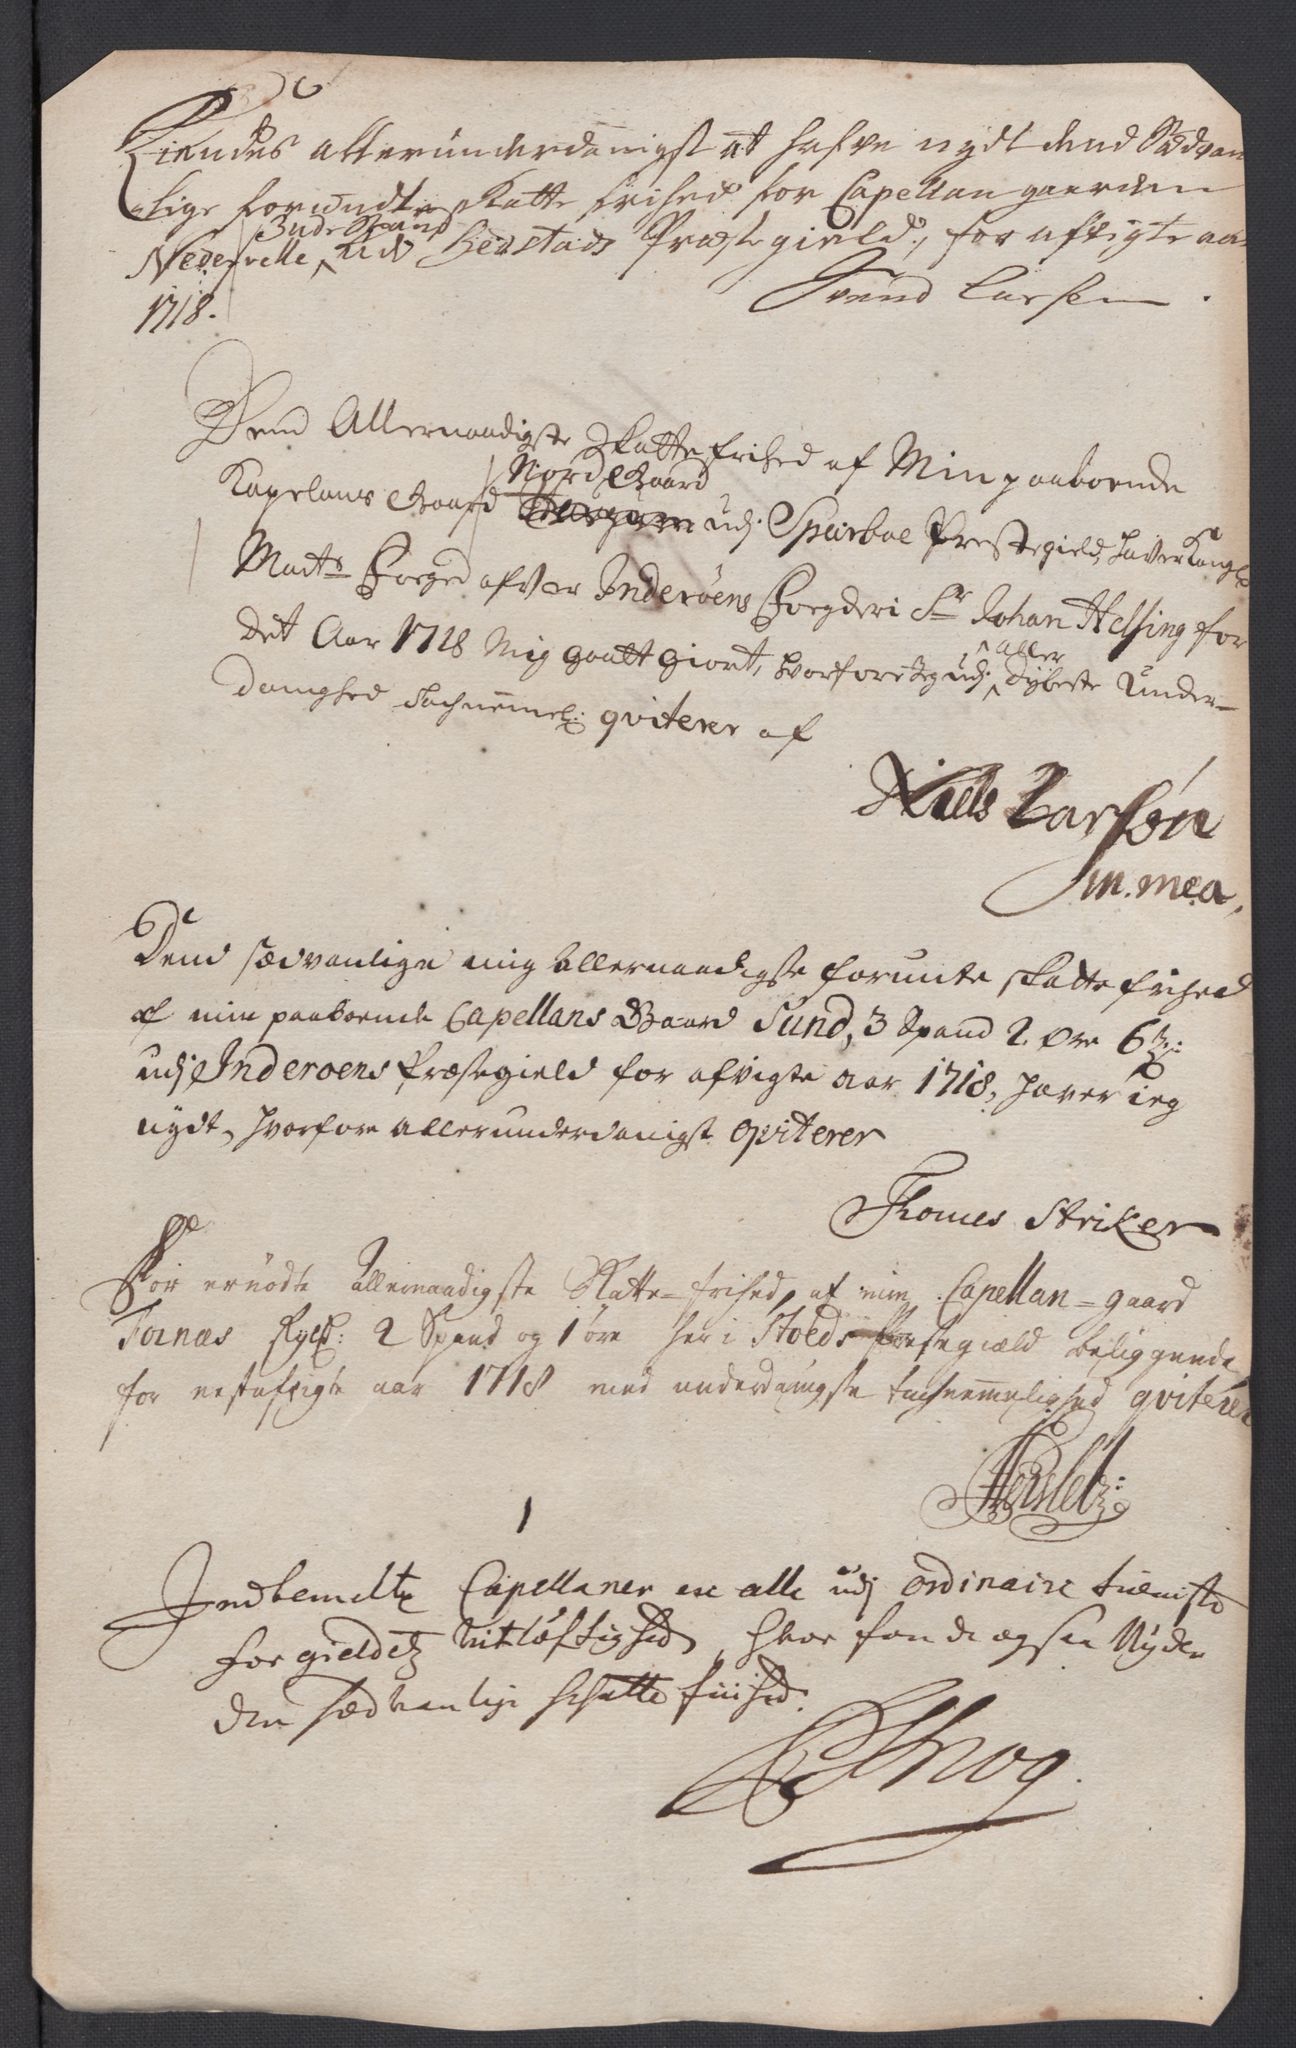 Kiendes allerunderdanigst at hafve nydt dend Sædvan
lige forundte skatte frihed for Capellan gaarden
Nedervelle udj Beitstads Præstegield, for afvigte aar
1718.
Svend Larsen.
Dend Allernaadigste Skatte frihed af Min paaboende
Kapelans Gaard Nord Gaard udj Sparboe Prestegield, haver Kongl
Mayts Foged ofver Inderøens Fogderi Sr Johan Helsing for
det Aar 1718 Mig gaatt giort, hvorfore Jeg udj aller dybeste Under-
danighed tachnemel: qviterer af
Niels Larssøn
m. mea,
Dend sædvanlige mig allernaadigste forunte skatte frihed
af min paaboende Capellans Gaard Sund, 3 Spand 2 øre 6
udj Inderøens Præstegield for afvigte aar 1718, haver ieg
nydt, hvorfore allerunderdanigst qviterer
Thomes Striker
For ernödte Allernaadigste Skatte-frihed, af min Capellan-gaard
Tornæs skyld: 2 Spand og 1 öre her i Stods Præstegiæld beliggende
for nestafvigte aar 1718 med underdanigste tachnemmelighed qviterer
Hersleb:
Indbemelte Capellaner ere alle udj ordinaire tieniste
for gieldetz vitløftighed, hvor for de ogsaa Nyder
den sædvanlige schatte friihed.
Schrog.